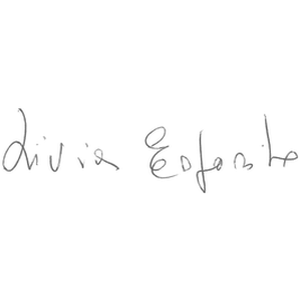 Livia Esposito